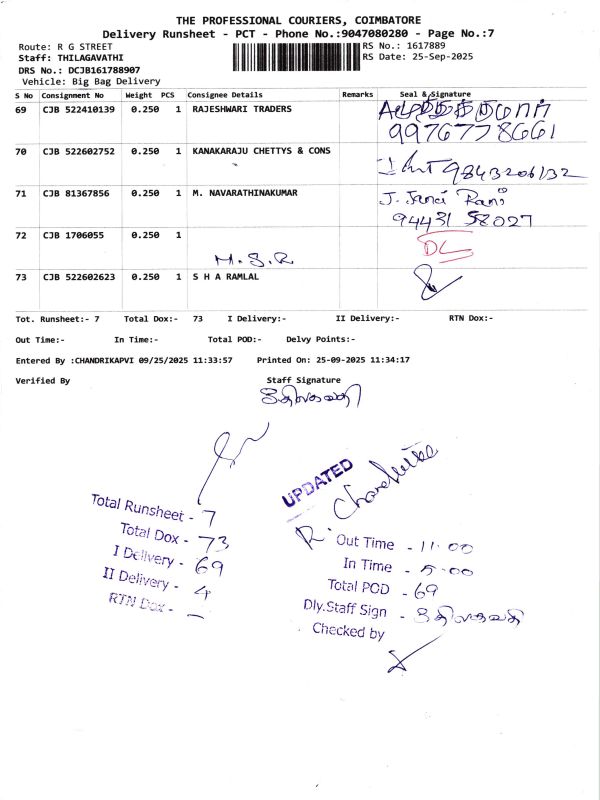 THE PROFESSIONAL COURIERS, COIMBATORE
Delivery Runsheet - PCT - Phone No.:9047080280 - Page No.:7
Route: R G STREET
RS No.: 1617889
Staff: THILAGAVATHI
RS Date: 25-Sep-2025
DRS No.: DCJB161788907
Vehicle: Big Bag Delivery
S No Consignment No Weight PCS Consignee Details Remarks Seal & Signature
69 CJB 522410139 0.250 1 RAJESHWARI TRADERS
70 CJB 522602752 0.250 1 KANAKARAJU CHETTYS & CONS 9843206132
71 CJB 81367856 0.250 1 M. NAVARATHINAKUMAR J. Rani
94431 58027
72 CJB 1706055 0.250 1 DL
M.S.R
73 CJB 522602623 0.250 1 S H A RAMLAL
Tot. Runsheet:- 7 Total Dox:- 73 I Delivery:- II Delivery:- RTN Dox:-
Out Time:- In Time:- Total POD:- Delvy Points:-
Entered By :CHANDRIKAPVI 09/25/2025 11:33:57 Printed On: 25-09-2025 11:34:17
Verified By Staff Signature
திலகவதி
UPDATED
Total Runsheet - 7
Total Dox - 73
I Delivery - 69
II Delivery - 4
RTN Dox - -
R.
Out Time - 11.00
In Time - 5.00
Total POD - 69
Dly.Staff Sign - திலகவதி
Checked by